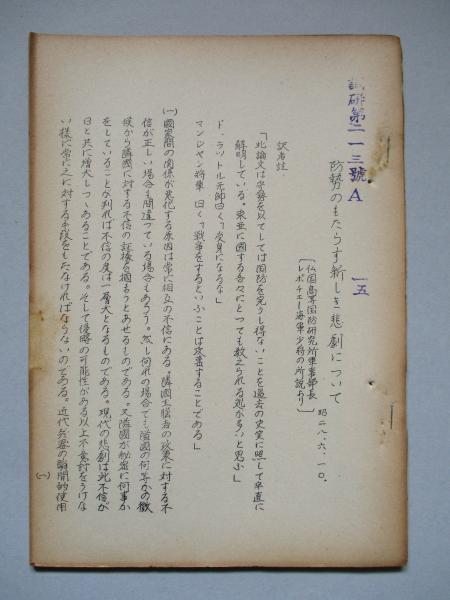 研第二一三號A
一五
防勢のもたらす新しき悲劇について
昭二八、六、一〇、
仏国高等国防研究所軍事部長
レポチエー海軍少将の所説より
訳者註、
「此論文は守勢を以てしては国防を完うし得ないことを過去の史実に照して卒直に
解明している。東亜に國する各々にとつても教えられる処が多いと思ふ」
ド、ラツトル元帥曰く「受身になるな」
マンジヤン将軍 曰く「戦争をするといふことは攻撃することである」
(一)國家間の関係が悪化する原因は常に相互の不信にある。隣國主脳者の政策に対する不
信が正しい場合も間違つている場合もあろう。然し何れの場合でも隣國の何等かの徴
候から隣國に対する不信の証據を掴もうとあせるものである。又隣國が秘密に何事か
をしていることが判れば不信の度は一層大となるものである。現代の悲劇は此不信が
日と共に増大しつゝあることである。そして侵略の可能性がある以上不意討をうけな
い様に常に之に対する手段をもたなければならないのである。近代兵器の奇間的使用
(一)